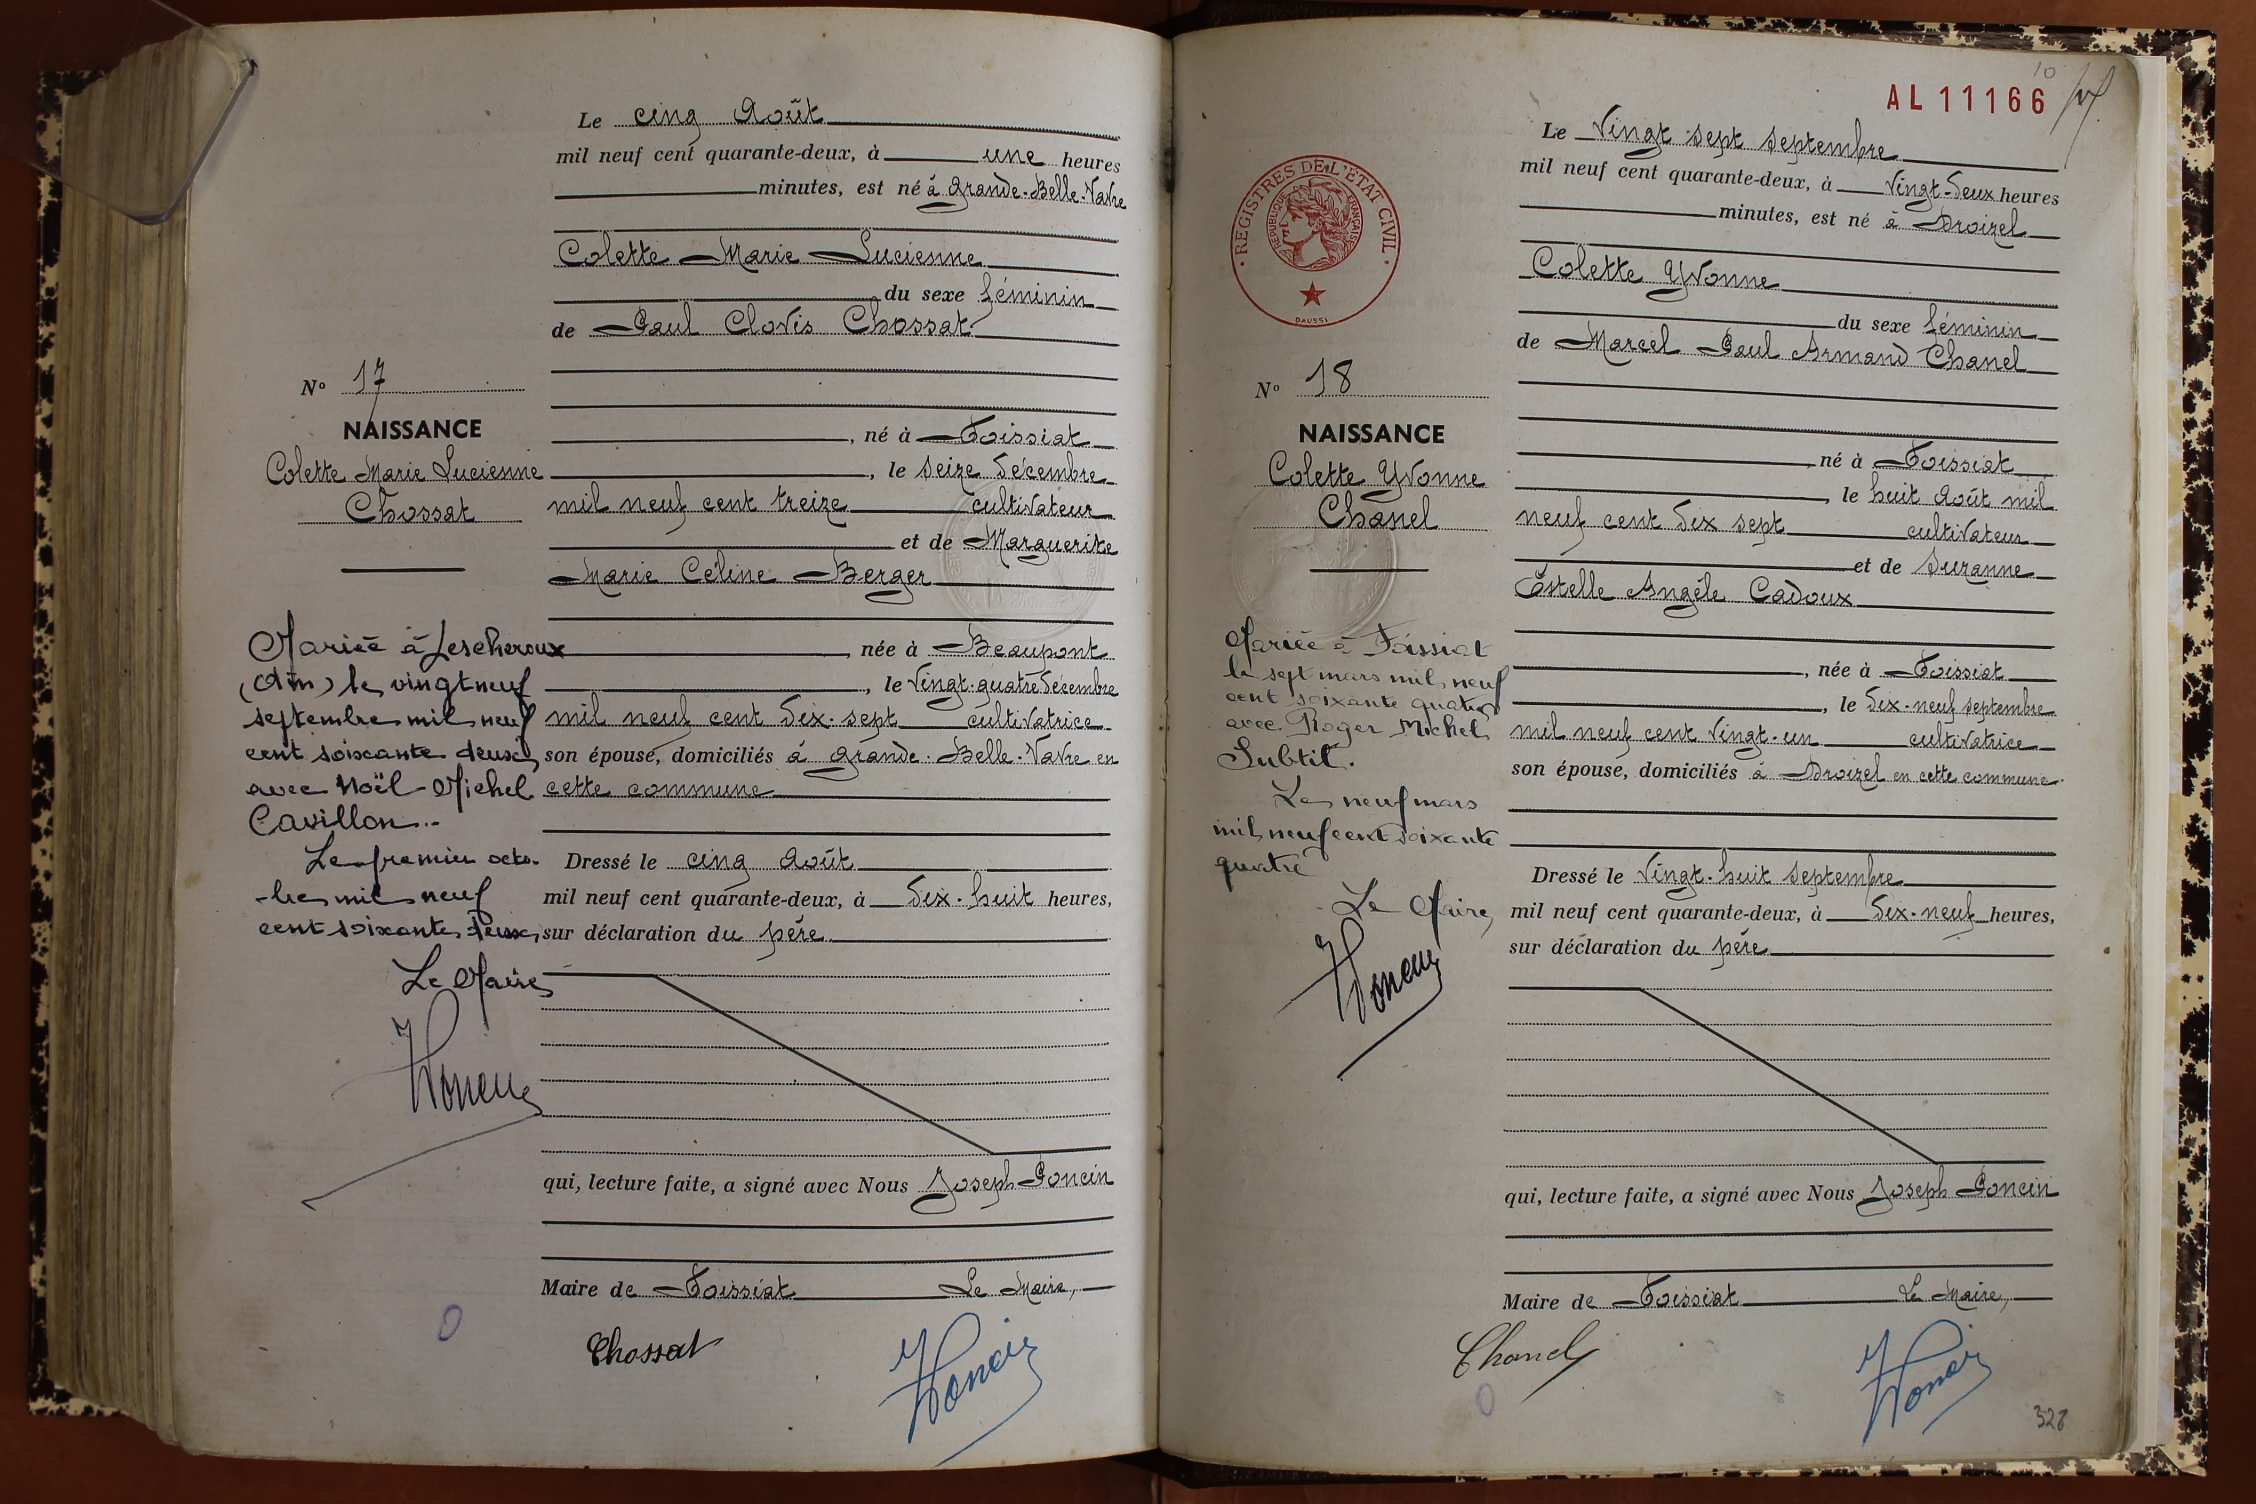 Le cinq Août
mil neuf cent quarante-deux, à une heures
minutes, est né à Grande-Belle-Vavre
Colette Marie Lucienne
du sexe féminin
de Paul Clovis Chossat
N° 17
NAISSANCE
Colette Marie Lucienne
Chossat
né à Foissiat
, le seize décembre
mil neuf cent treize cultivateur
et de Marguerite
Marie Céline Berger
née à Beaupont
, le vingt-quatre décembre
mil neuf cent dix-sept cultivatrice
son épouse, domiciliés à Grande-Belle-Vavre en
cette commune
Mariée à Lescheroux
(Ain) le vingt neuf
septembre mil neuf
cent soixante deux
avec Noël-Michel
Cavillon..
Le premier octo-
-bre mil neuf
cent soixante deux,
Le Maire
Dressé le cinq Août
mil neuf cent quarante-deux, à dix-huit heures,
sur déclaration du père
qui, lecture faite, a signé avec Nous Joseph Poncin
Maire de Foissiat Le Maire,
Chossat
Poncin
AL 11166
10
Le vingt sept septembre
mil neuf cent quarante-deux, à vingt-deux heures
minutes, est né à Droizel
Colette Yvonne
du sexe féminin
de Marcel Paul Armand Chanel
REGISTRES DE L'ETAT CIVIL
REPUBLIQUE FRANÇAISE
DAUSSI
N° 18
NAISSANCE
Colette Yvonne
Chanel
né à Foissiat
, le huit Août mil
neuf cent dix sept cultivateur
et de Suzanne
Estelle Angèle Cadoux
, née à Foissiat
, le dix-neuf septembre
mil neuf cent vingt-un cultivatrice
son épouse, domiciliés à Droizel en cette commune.
Mariée à Foissiat
le sept mars mil neuf
cent soixante quatre
avec Roger Michel
Subtil.
Le neuf mars
mil neuf cent soixante
quatre
Le Maire,
Dressé le vingt-huit septembre
mil neuf cent quarante-deux, à dix-neuf heures,
sur déclaration du père
qui, lecture faite, a signé avec Nous Joseph Poncin
Maire de Foissiat Le Maire,
Chanel
Poncin
328